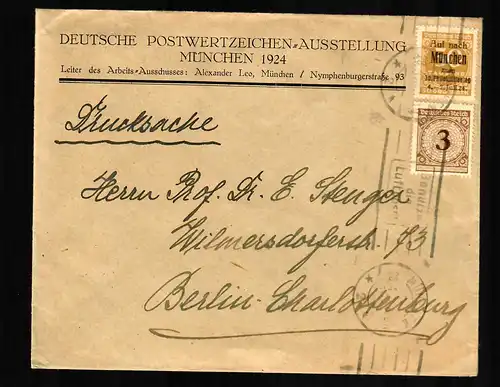 DEUTSCHE POSTWERTZEICHEN-AUSSTELLUNG
MÜNCHEN 1924
Leiter des Arbeits-Ausschusses: Alexander Leo, München / Nymphenburgerstraße 93
Auf nach
München
Deutsches Reich
3
Drucksache
Herrn Prof. Dr. E. Stenger
Wilmersdorferstr. 73
Berlin-Charlottenburg